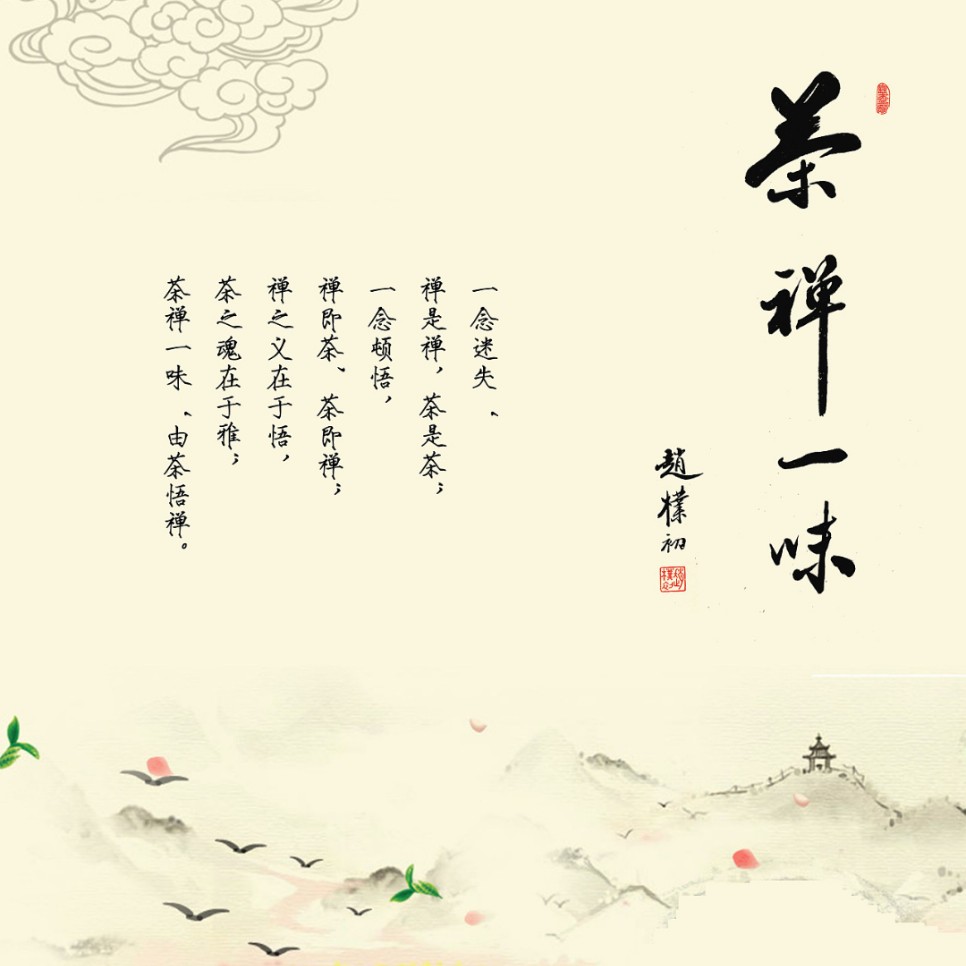 茶禅一味
趙樸初
一念迷失、
禅是禅，茶是茶；
一念顿悟，
禅即茶、茶即禅；
禅之义在于悟，
茶之魂在于雅；
茶禅一味、由茶悟禅。